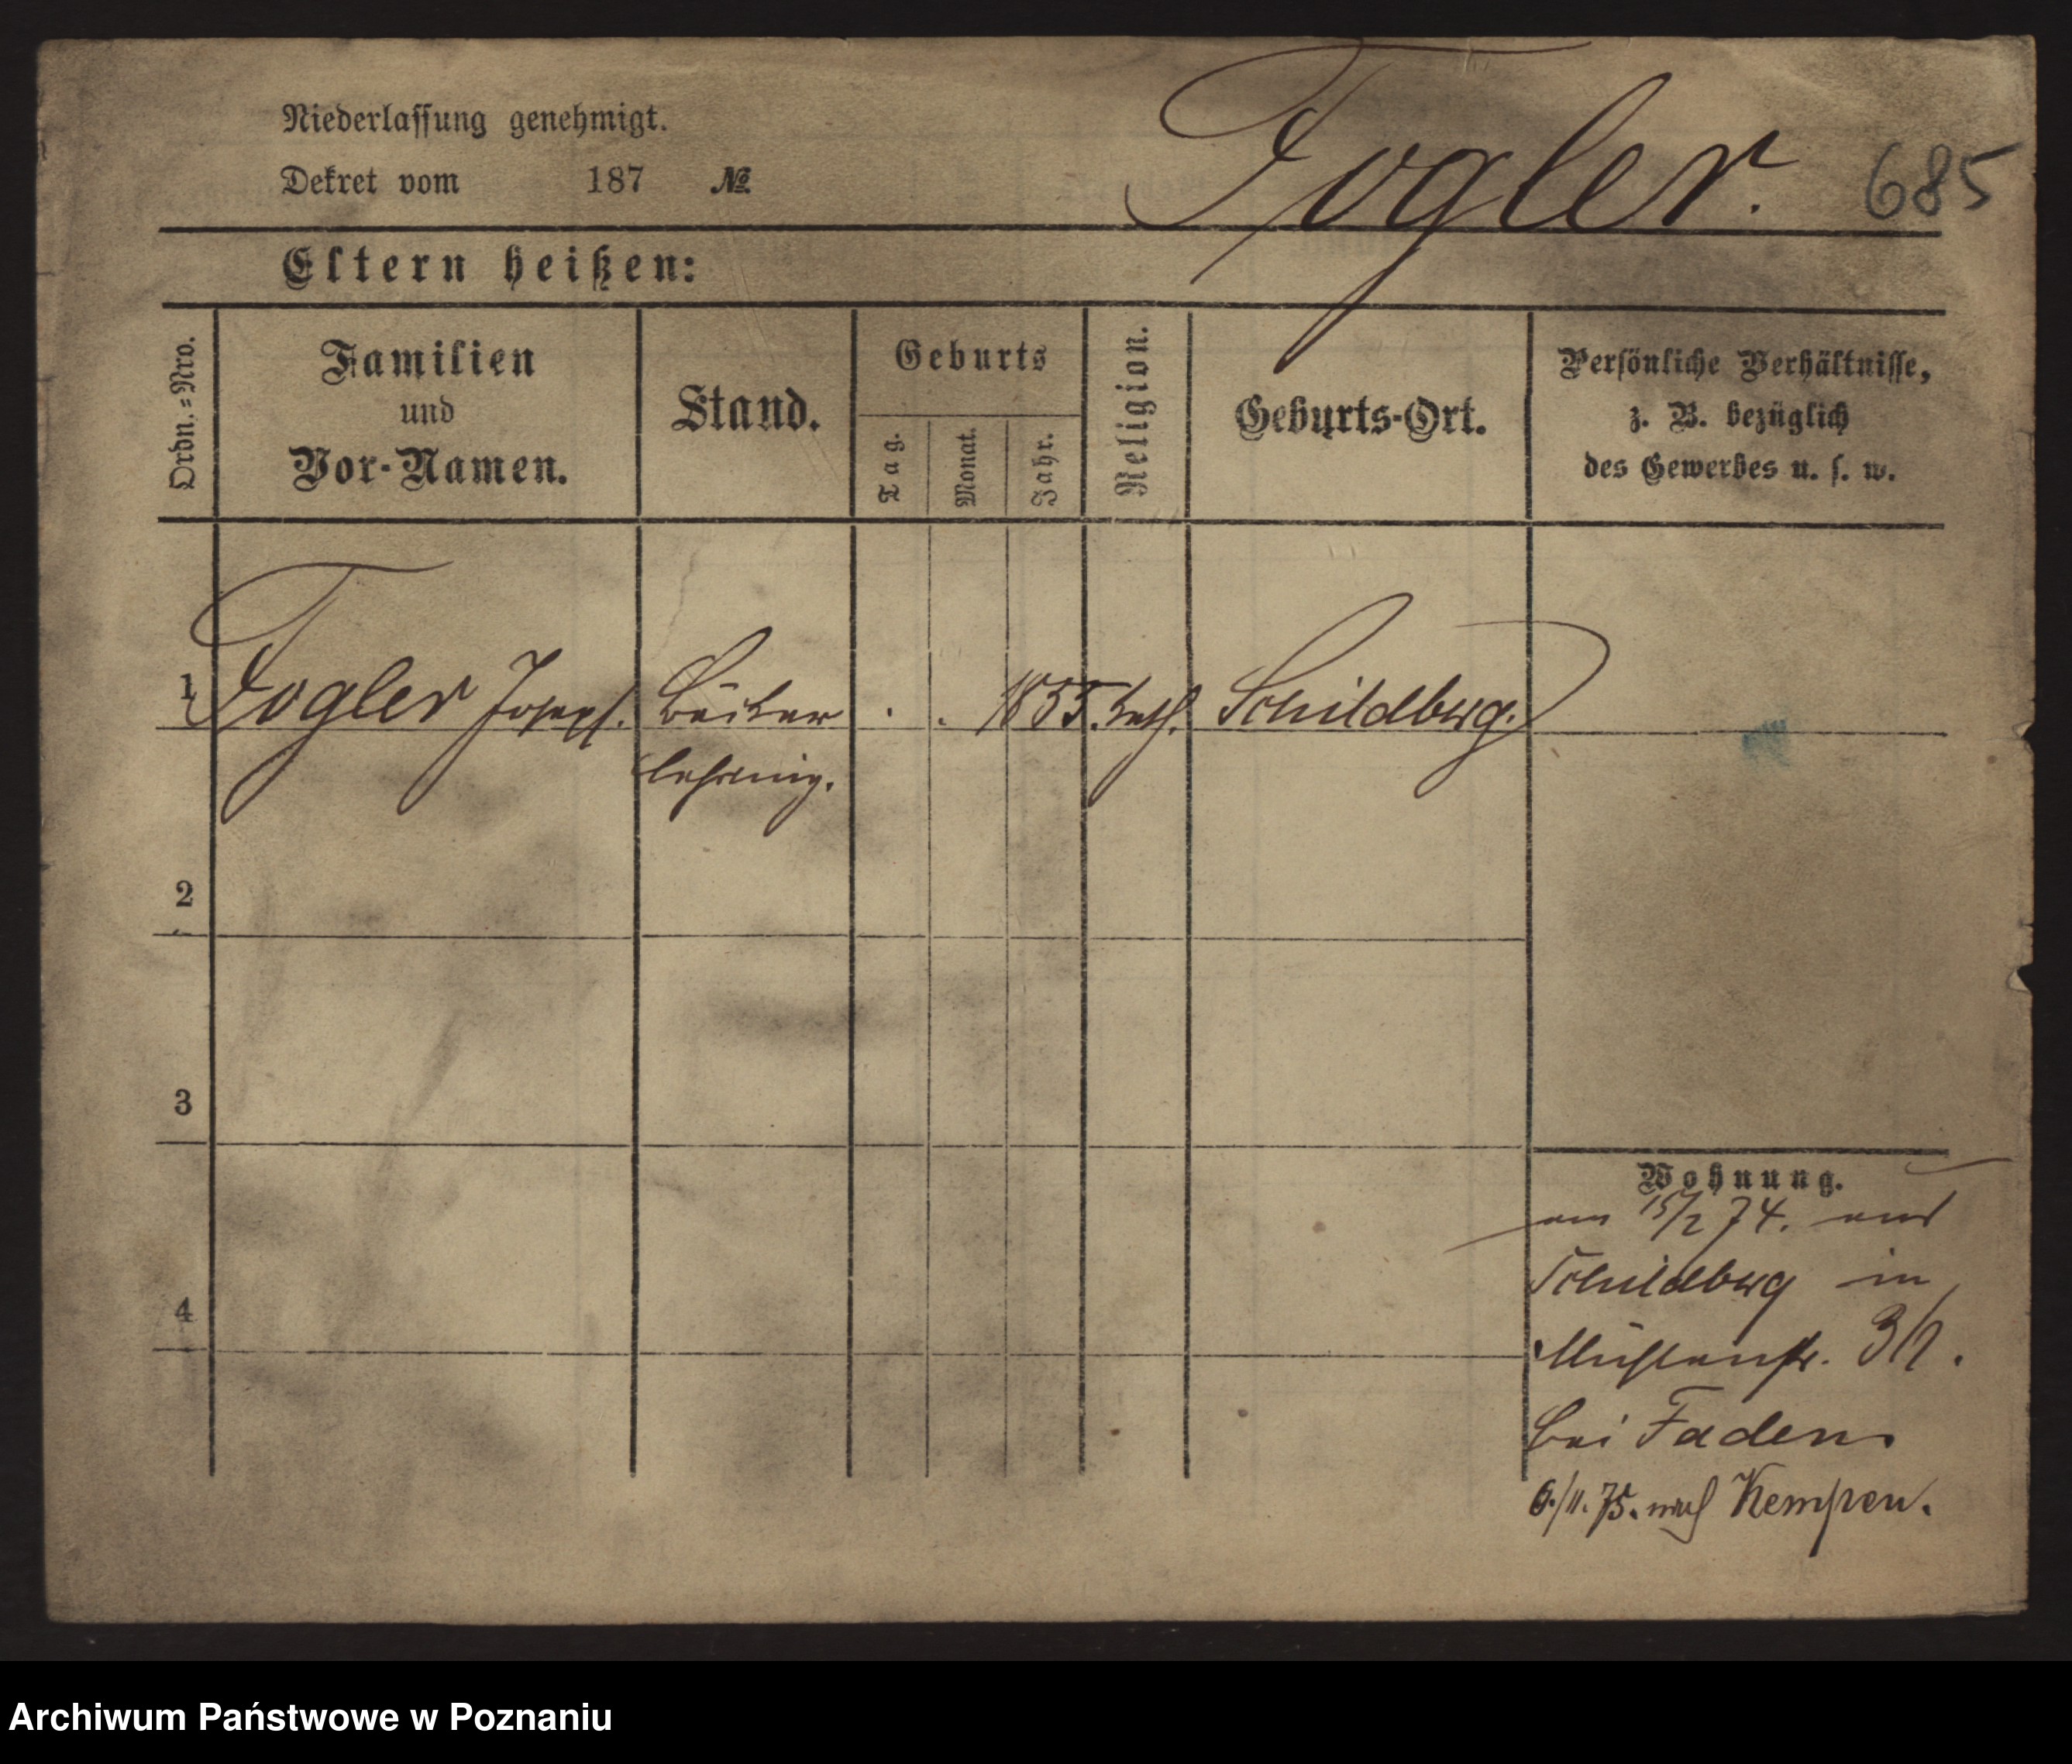 Niederlassung genehmigt.
Dekret vom 187 №
Fogler. 685
Eltern heißen:
Ordn.=Nro.
Familien
und
Vor-Namen.
Stand.
Geburts
Tag.
Monat.
Jahr.
Religion.
Geburts-Ort.
Persönliche Verhältnisse,
z. B. bezüglich
des Gewerbes u. s. w.
1 Fogler Joseph. Bäcker . . 1855. kath. Schildberg.
lehrling.
2
3
4
Wohnung.
am 15/2 74. aus
Schildberg in
Mühlenstr.
bei Faden
6./11. 75. nach Kempen.
Archiwum Państwowe w Poznaniu